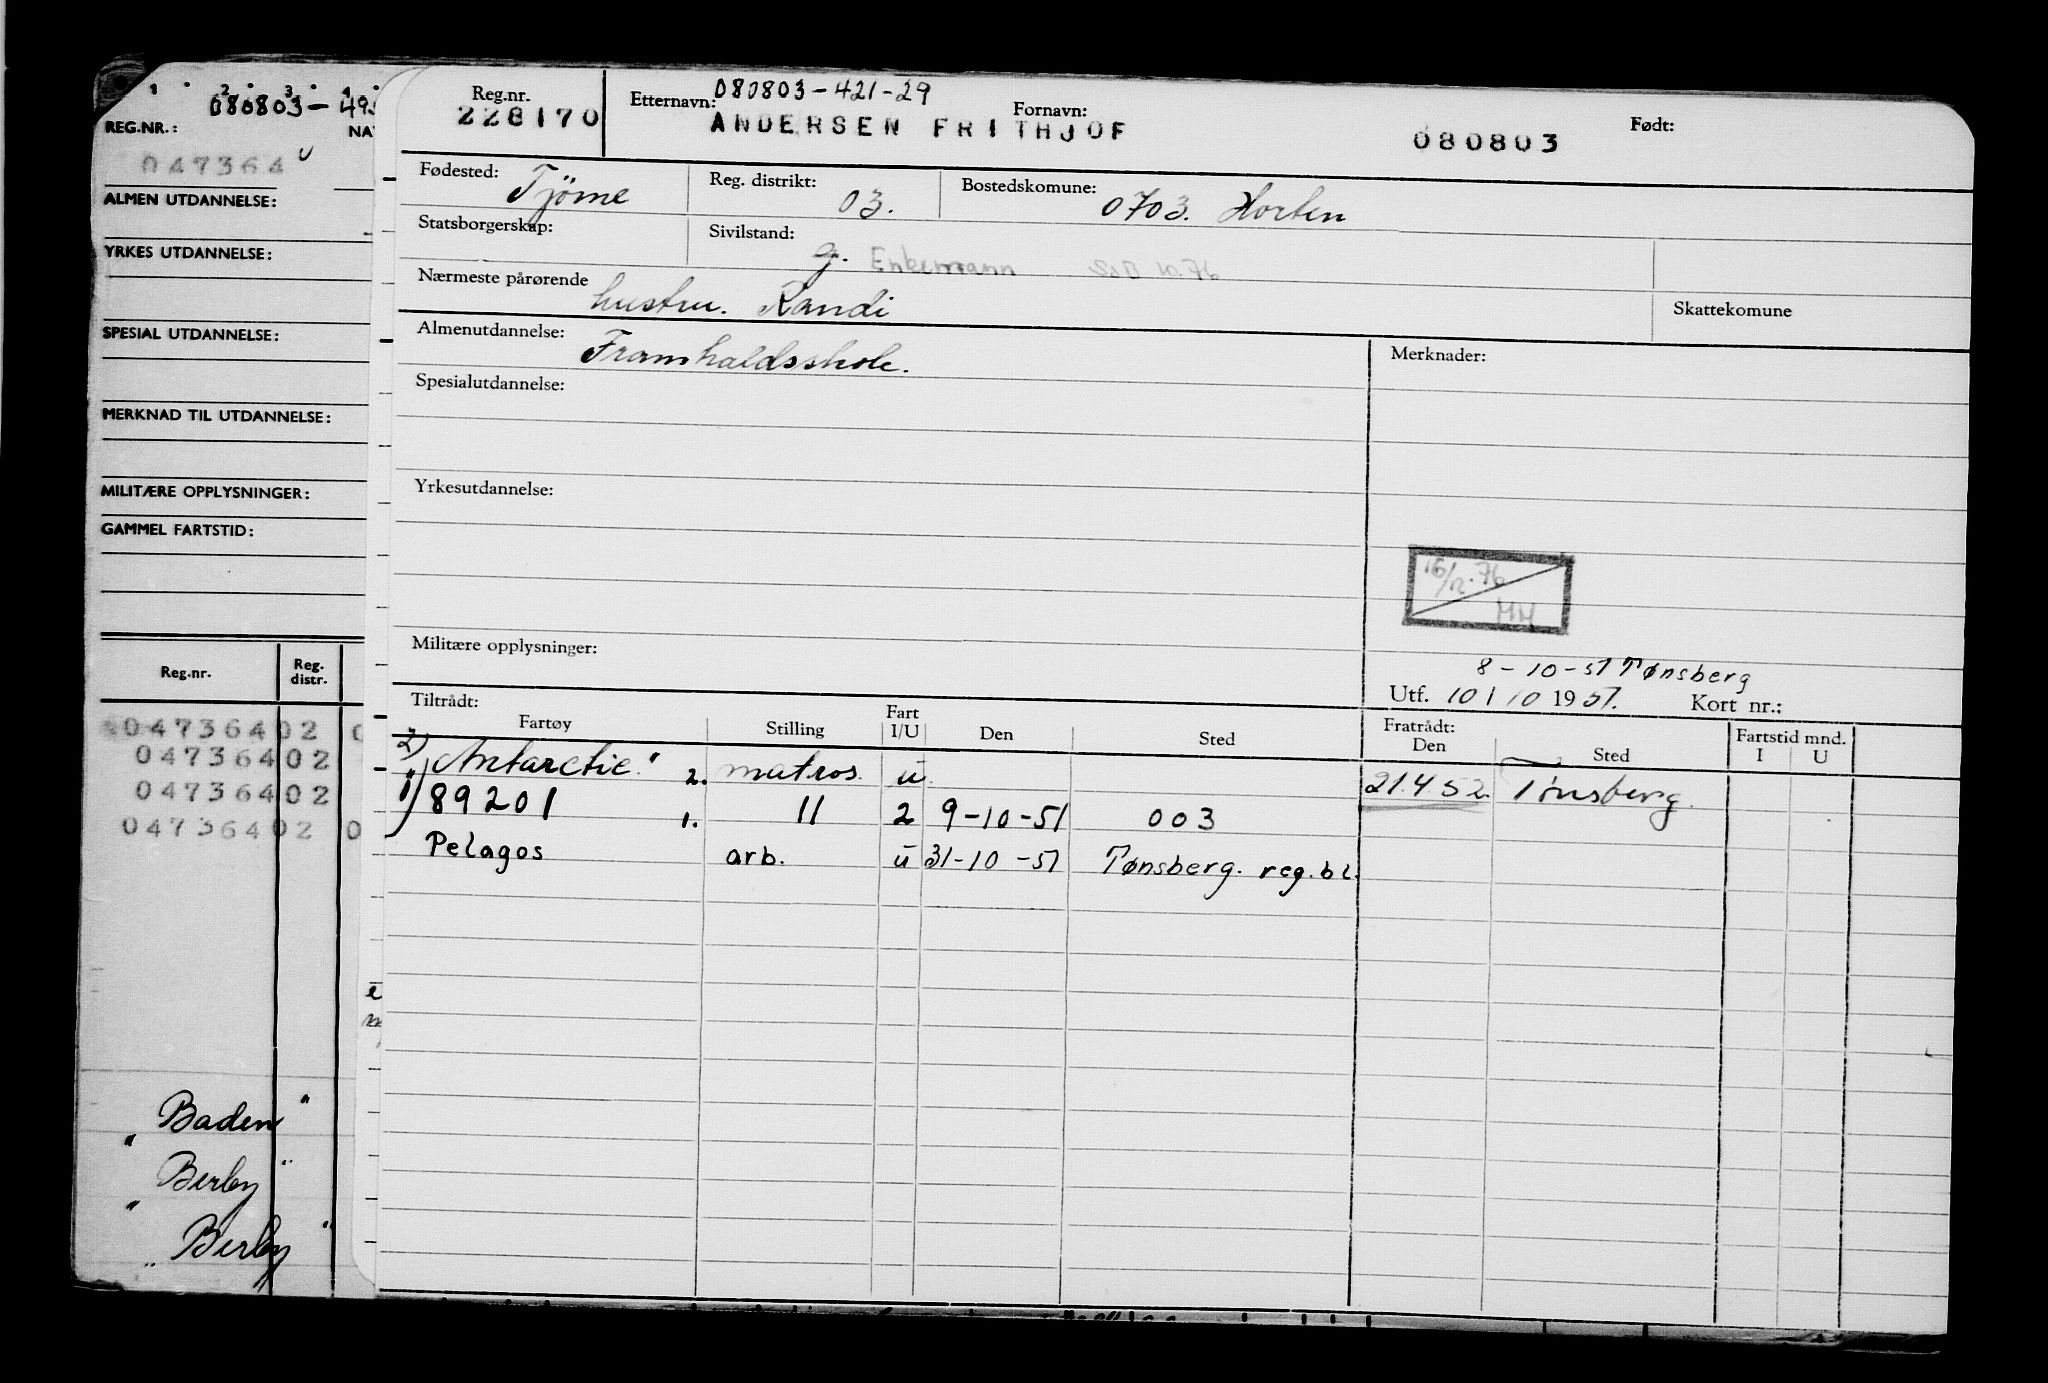 1 2 3 4
080803-49
REG.NR.: NA
047364 U
ALMEN UTDANNELSE:
YRKES UTDANNELSE:
SPESIAL UTDANNELSE:
MERKNAD TIL UTDANNELSE:
MILITÆRE OPPLYSNINGER:
GAMMEL FARTSTID:
Reg.nr. Reg. distr.
047364 02 0
047364 02
047364 02
047364 02 0
"Baden"
"Birby"
"Birby"
Reg.nr. 228170
080803-421-29
Etternavn: Fornavn: Født:
ANDERSEN FRITHJOF 080803
Fødested: Tjöme Reg. distrikt: 03. Bostedskomune: 0703. Horten
Statsborgerskap: Sivilstand: g. Enkemann 10.76
Nærmeste pårørende hustru. Randi Skattekomune
Almenutdannelse: Framhaldsskole. Merknader:
Spesialutdannelse:
Yrkesutdannelse:
16/12.76
MM
Militære opplysninger:
8-10-51 Tønsberg
Utf. 10/10 1951. Kort nr.:
Tiltrådt: Fratrådt: Fartstid mnd.
Fartøy Stilling Fart I/U Den Sted Den Sted I U
2) "Antarctic." 2. matros. u. 21.4 52. Tønsberg.
1) 89201 1. 11 2 9-10-51 003
Pelagos arb. u 31-10-51 Tønsberg. reg.bl.